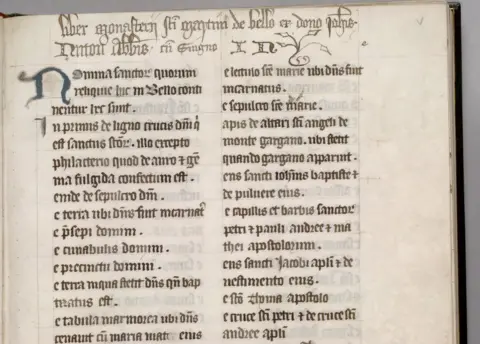 liber monasterij sti martini de bello ex dono Johis
Newton Abbis. cu signo I N
Nomina sanctor quorum
reliquie hic in Bello conti
nentur hec sunt.
In primis de ligno crucis dni q
est sanctus stor. illo excepto
philacterio quod de auro & ge
ma fulgida confectum est.
emde de sepulcro dni.
e terra ubi dns fuit incarnat
e psepi domini.
e cunabulis domini.
e precinctu domini.
e terra inqua stetit dns qn bap
tizatus est.
e tabula marmorea ubi dns
cenauit cu maria mat eius
e lectulo sce marie ubi dns fuit
incarnatus.
e sepulcro sce marie.
apis de altari sci angeli de
monte gargano. ubi stetit
quando gargano apparuit.
ens sancti iohnis baptiste &
de puluere eius.
e capillis et barbis sanctor
petri & pauli andree & ma
thei apostolorum.
ens sancti Jacobi apli & de
uestimento eius.
e sco thoma apostolo
e cruce sci petri & de cruce sci
andree apli